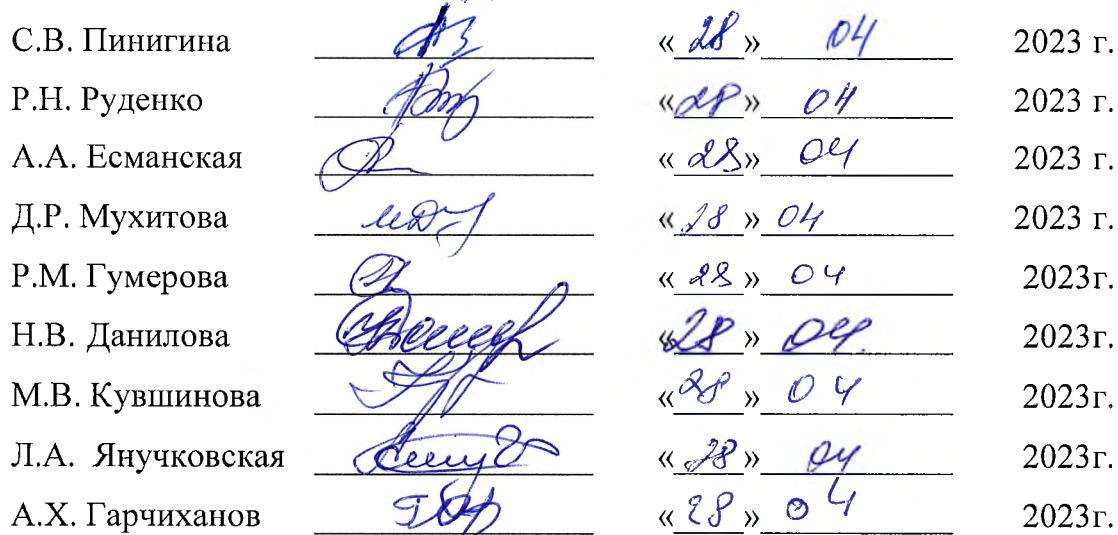 С.В. Пинигина « 28 » 04 2023 г.
Р.Н. Руденко « 28 » 04 2023 г.
А.А. Есманская « 28 » 04 2023 г.
Д.Р. Мухитова « 28 » 04 2023 г.
Р.М. Гумерова « 28 » 04 2023г.
Н.В. Данилова « 28 » 04. 2023г.
М.В. Кувшинова « 28 » 04 2023г.
Л.А. Янучковская « 28 » 04 2023г.
А.Х. Гарчиханов « 28 » 04 2023г.